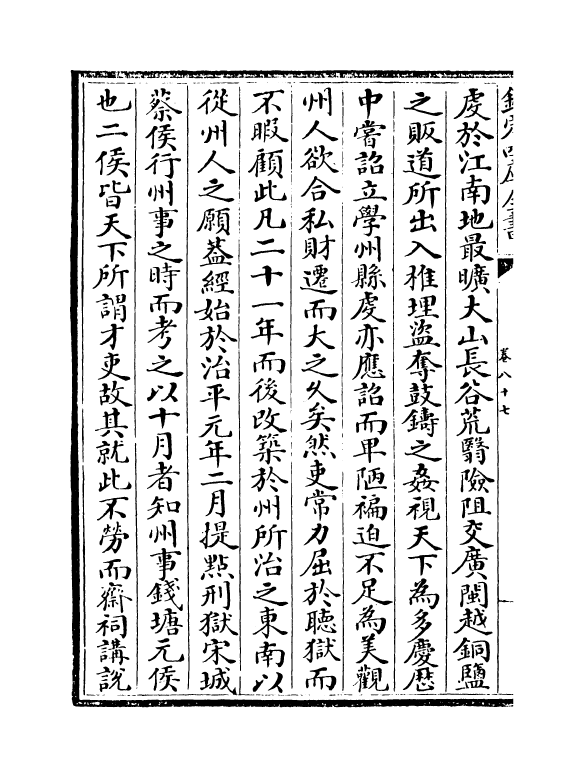 欽定四庫全書
卷八十七
虔於江南地最曠大山長谷荒翳險阻交廣閩越銅鹽
之販道所出入椎埋盜奪鼓鑄之姦視天下為多慶厯
中嘗詔立學州縣虔亦應詔而卑陋褊迫不足為美觀
州人欲合私財遷而大之久矣然吏常力屈於聽獄而
不暇顧此凡二十一年而後改築於州所治之東南以
從州人之願葢經始於治平元年二月提㸃刑獄宋城
蔡侯行州事之時而考之以十月者知州事錢塘元侯
也二侯皆天下所謂才吏故其就此不勞而齋祠講說